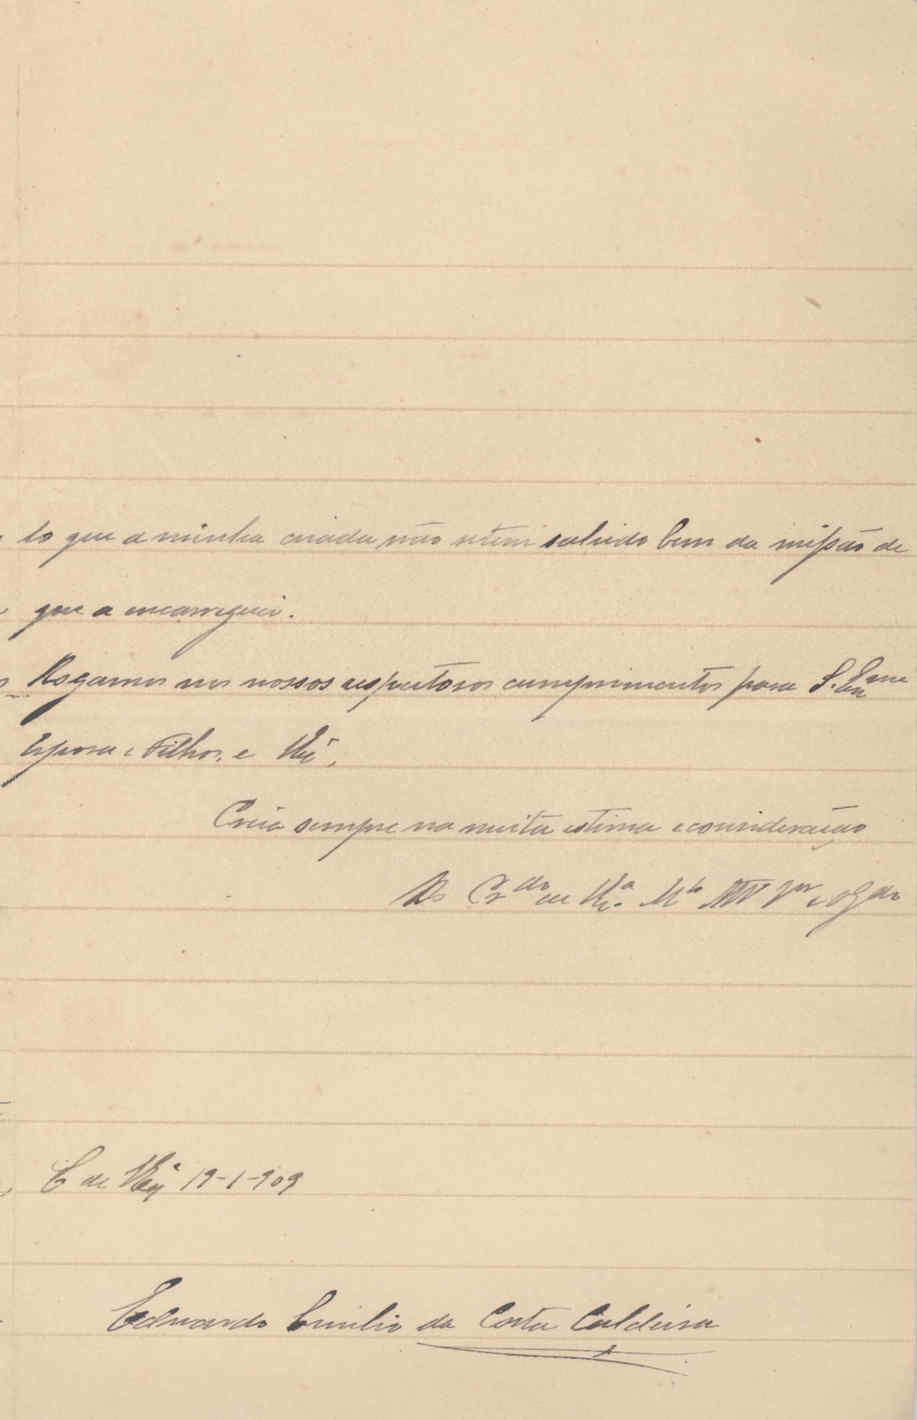 to que a minha criada não tem sahido bem da missão de
que a encarreguei.
Rogamos nos nossos respeitosos cumprimentos para S. Exma
Esposa e Filhos, e
Creia sempre na muita estima e consideração
Do Crdo de Va. Mto
C de 19-1-909
Eduardo Emilio da Costa Caldeira